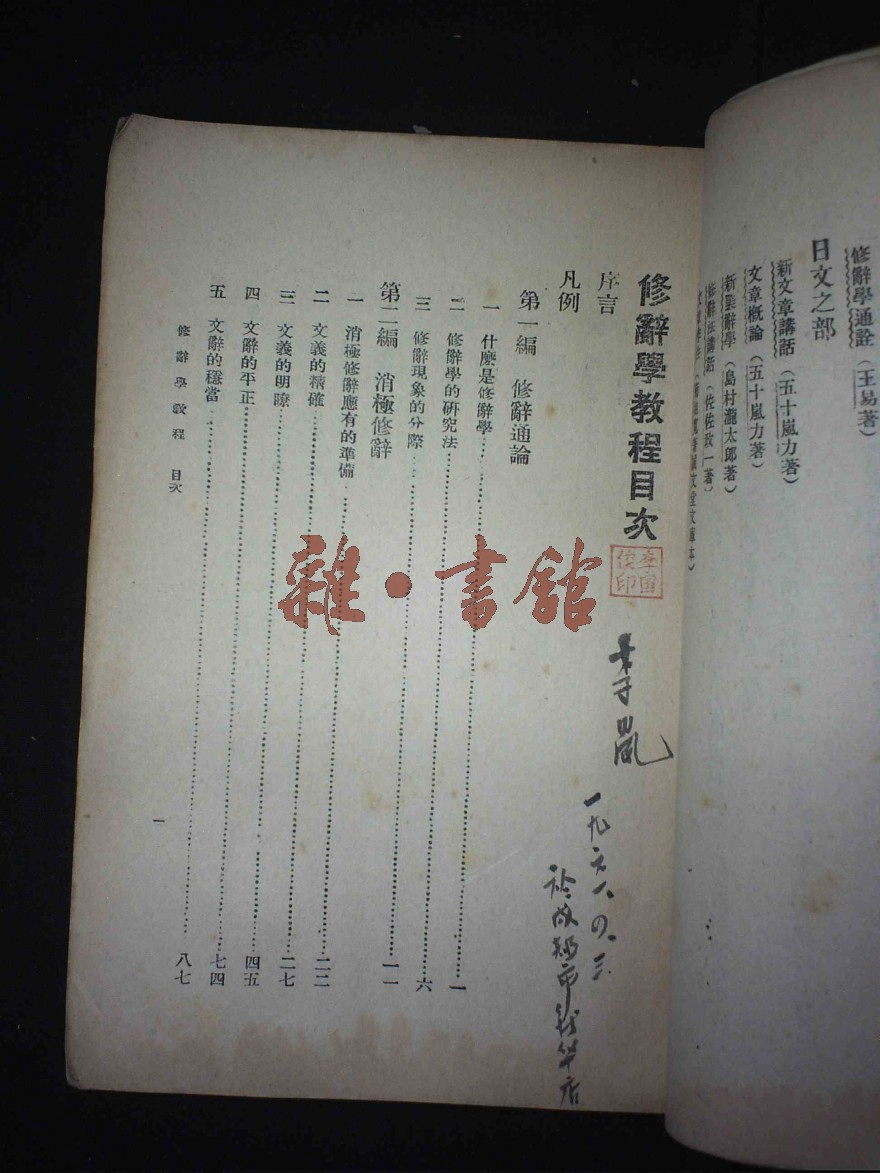 修辭學通詮（王易著）
日文之部
新文章講話（五十嵐力著）
文章概論（五十嵐力著）
新美辭學（島村瀧太郎著）
修辭法講話（佐佐政一著）
修辭學教程目次
序言
凡例
第一編　修辭通論
一　什麼是修辭學……一
二　修辭學的研究法……六
三　修辭現象的分際……一一
第二編　消極修辭
一　消極修辭應有的準備……二二
二　文義的精確……二七
三　文義的明瞭……四五
四　文辭的平正……七四
五　文辭的穩當……八七
修辭學教程　目次
一
李國俊印
一九六一、四、三
於成都市
雜·書館